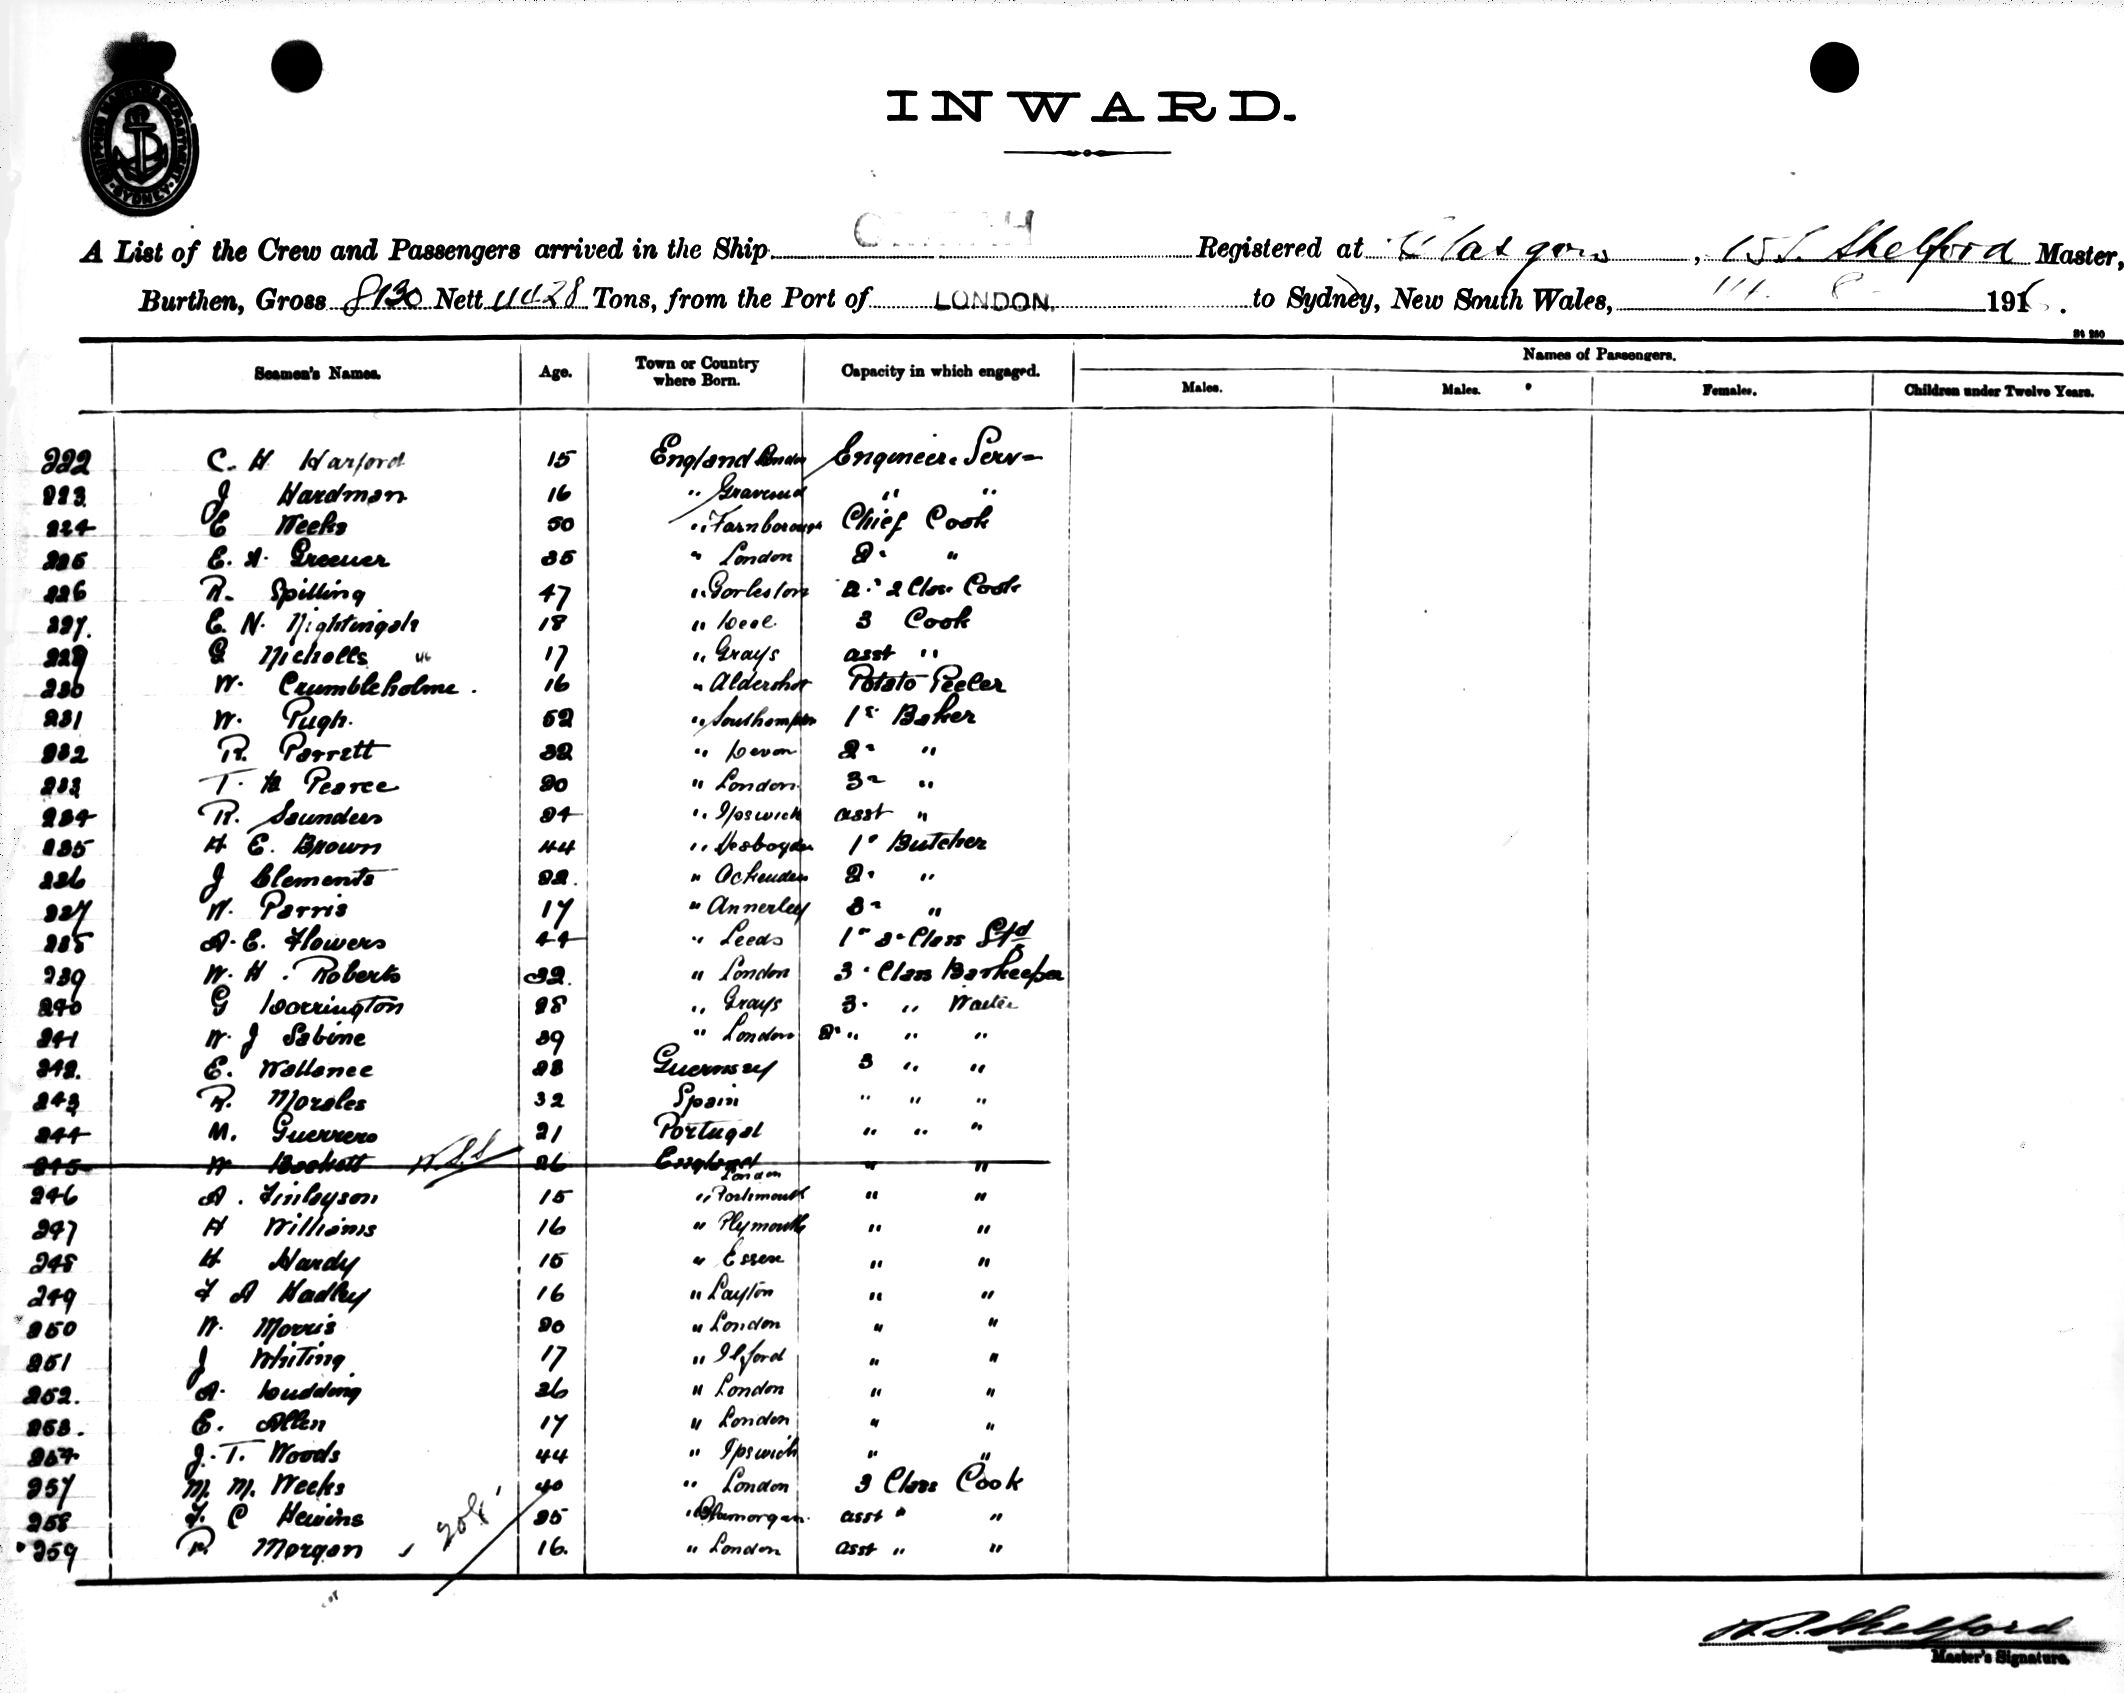 INWARD.
A List of the Crew and Passengers arrived in the Ship Registered at Glasgow, Shelford Master,
Burthen, Gross 8130 Nett 4428 Tons, from the Port of LONDON. to Sydney, New South Wales, 191
Seamen's Names. Age. Town or Country where Born. Capacity in which engaged. Names of Passengers.
Males. Males. Females. Children under Twelve Years.
222 C. H Harford 15 England London Engineers Serv
223 J Hardman 16 " Gravesend " "
224 E Weeks 50 " Farnborough Chief Cook
225 E. A. Greener 35 " London 2 "
226 R. Spilling 47 " Gorleston 2 2 Class Cook
227. E. N. Nightingale 18 " Deal 3 Cook
229 G Nicholls 17 " Grays asst "
230 W. Crumbleholme. 16 " Aldershot Potato Peeler
231 W. Pugh. 52 " Southampton 1 Baker
232 R. Parrett 32 " Devon 2 "
233 T. H Pearce 20 " London 3 "
234 R. Saunders 24 " Ipswich asst "
235 H E. Brown 44 " 1 Butcher
236 J Clements 22. " 2 "
237 W. Parris 17 " Annerley 3 "
238 A. E. Flowers 44 " Leeds 1 2 Class Std
239 W. H. Roberts 32. " London 3 Class Barkeeper
240 G Dorrington 28 " Grays 3 " Waiter
241 W. J Sabine 39 " London 2 " " "
242. E. Wallance 23 Guernsey 3 " "
243 R. Morales 32 Spain " " "
244 M. Guerrero 21 Portugal " " "
245 W Beckett 26 England London " "
246 A. Finlayson 15 " Portsmouth " "
247 H Williams 16 " Plymouth " "
248 H Hardy 15 " Essex " "
249 F A Hadley 16 " Layton " "
250 W. Morris 20 " London " "
251 J Whiting 17 " Ilford " "
252. A. Dudding 26 " London " "
253. E. Allen 17 " London " "
254 J. T. Woods 44 " Ipswich " "
257 M. M. Weeks 40 " London 3 Class Cook
258 F. C Hewins 25 " Glamorgan. asst " "
259 R. Morgan 16. " London asst " "
W. S. Shelford
Master's Signature.